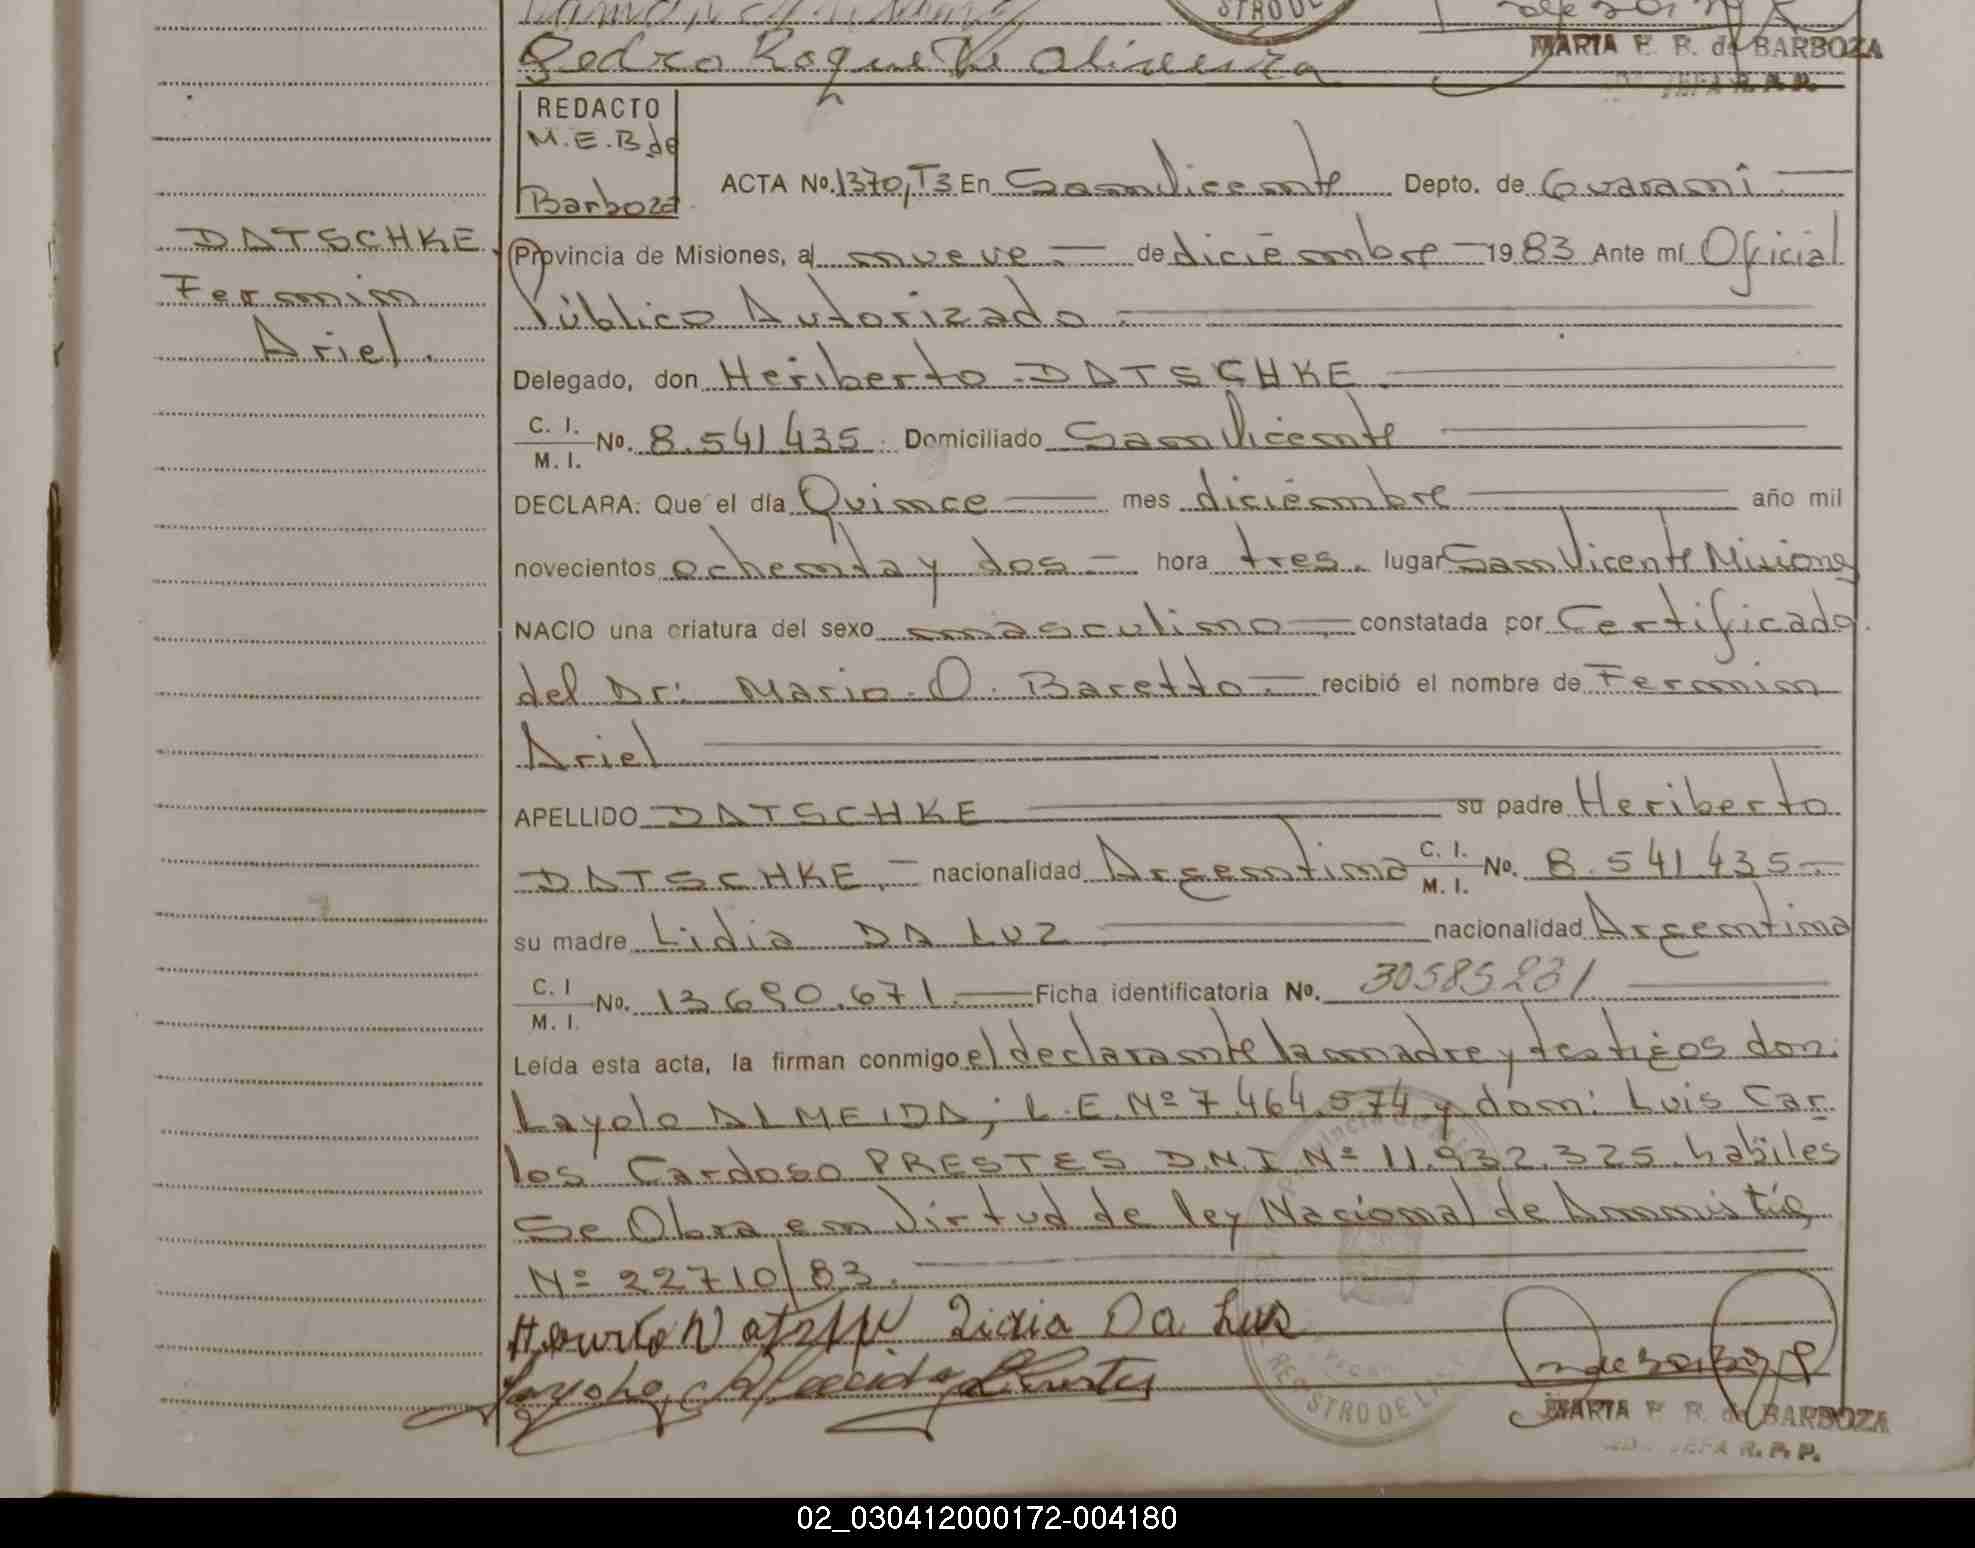 Pedro Roque De Oliveira
MARIA E. B. de BARBOZA
JEFA R. P. P.
REDACTO
M.E.B de
Barboza
ACTA No. 1370, T3 En San Vicente Depto. de Guaraní
DATSCHKE
Fermin
Ariel.
Provincia de Misiones, al nueve.— de diciembre — 1983 Ante mí Oficial
Público Autorizado.—
Delegado, don Heriberto DATSCHKE.
C. I.
M. I. No. 8.541.435. Domiciliado San Vicente
DECLARA: Que el día Quince — mes diciembre — año mil
novecientos ochenta y dos — hora tres. lugar San Vicente Misiones
NACIO una criatura del sexo masculino.— constatada por Certificado
del Dr: Mario O. Baretto.— recibió el nombre de Fermin
Ariel
APELLIDO DATSCHKE su padre Heriberto
DATSCHKE.— nacionalidad Argentina C. I.
M. I. No. 8.541.435—
su madre Lidia DA LUZ — nacionalidad Argentina
C. I
M. I. No. 13.690.671.— Ficha identificatoria No. 30585231
Leída esta acta, la firman conmigo el declarante la madre y testigos don:
Layolo ALMEIDA; L.E.Nº 7.464.574 y don: Luis Car
los Cardoso PRESTES D.N.I Nº 11.932.325. habiles
Se Obra en Virtud de ley Nacional de Amnistía
Nº 22710/83.
Lidia Da Lus
REGISTRO DE LAS
MARIA E. B. de BARBOZA
JEFA R. P. P.
02_030412000172-004180